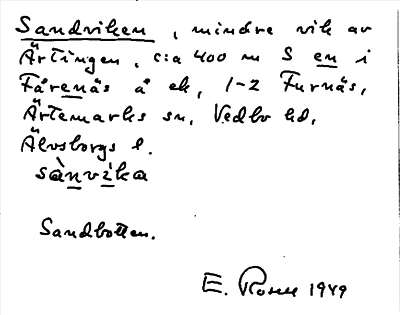 Sandviken, mindre vik av
Ärtingen, c:a 400 m S en i
Fårenäs å ek, 1-2 Furnäs,
Ärtemarks sn, Vedbo hd,
Älvsborgs l.
sànvika
Sandbotten.
E. Rosell 1949